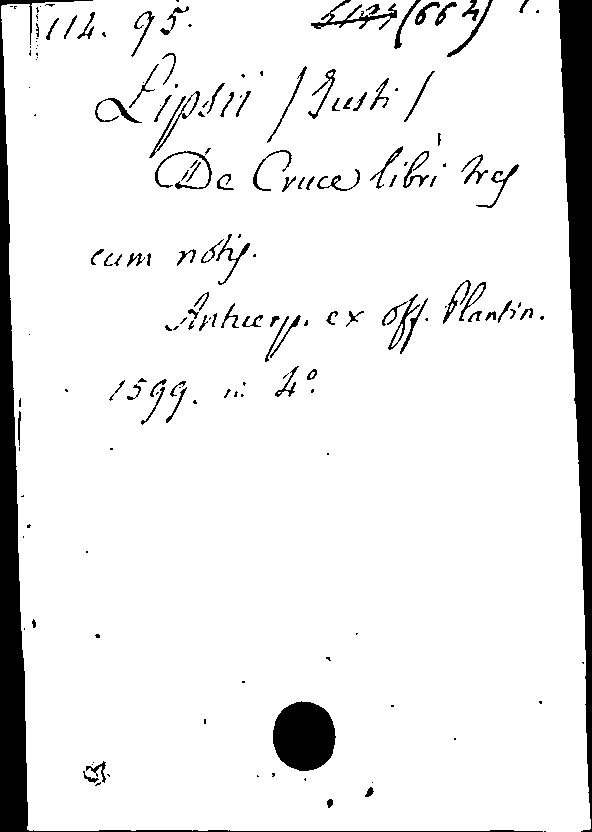 114. 95. (664) 1.
Lipsii /Justi/
De Cruce libri tres
cum notis.
Antuerp. ex off. Plantin.
1599. in 4°.